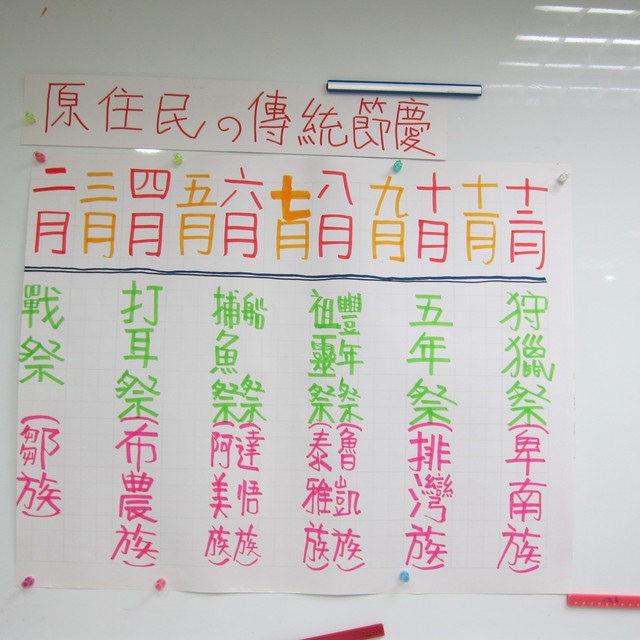 原住民の傳統節慶
二月 三月 四月 五月 六月 七月 八月 九月 十月 十一月 十二月
戰祭(鄒族)
打耳祭(布農族)
捕魚祭(阿美族)
船祭(達悟族)
祖靈祭(泰雅族)
豐年祭(魯凱族)
五年祭(排灣族)
狩獵祭(卑南族)